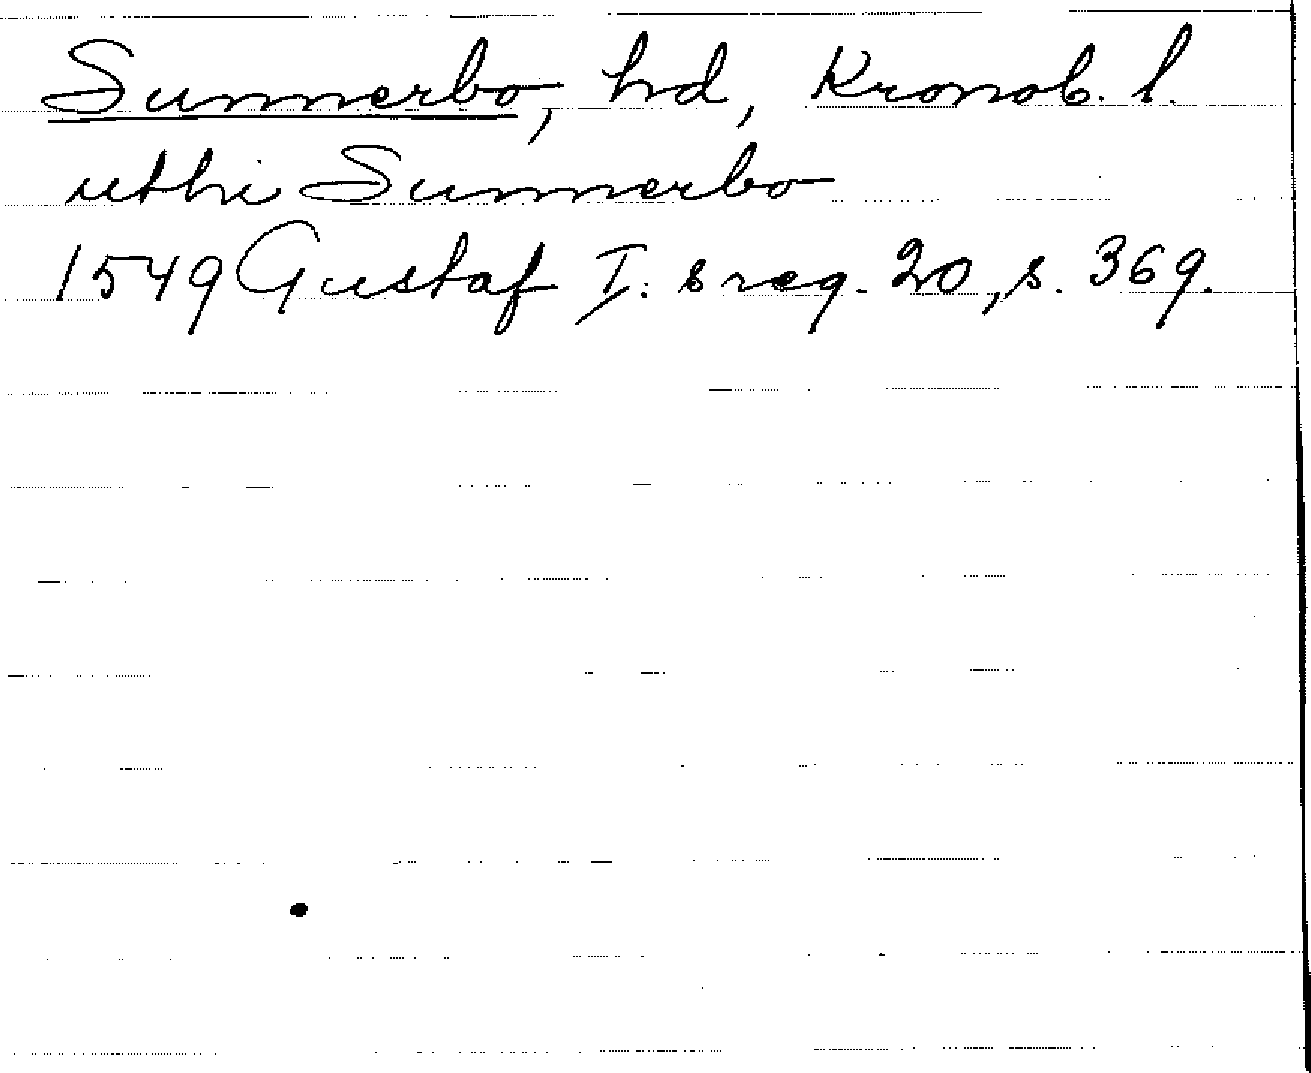 Sunnerbo, hd, Kronob. l.
uthi Sunnerbo
1549 Gustaf I: s reg. 20, s. 369.